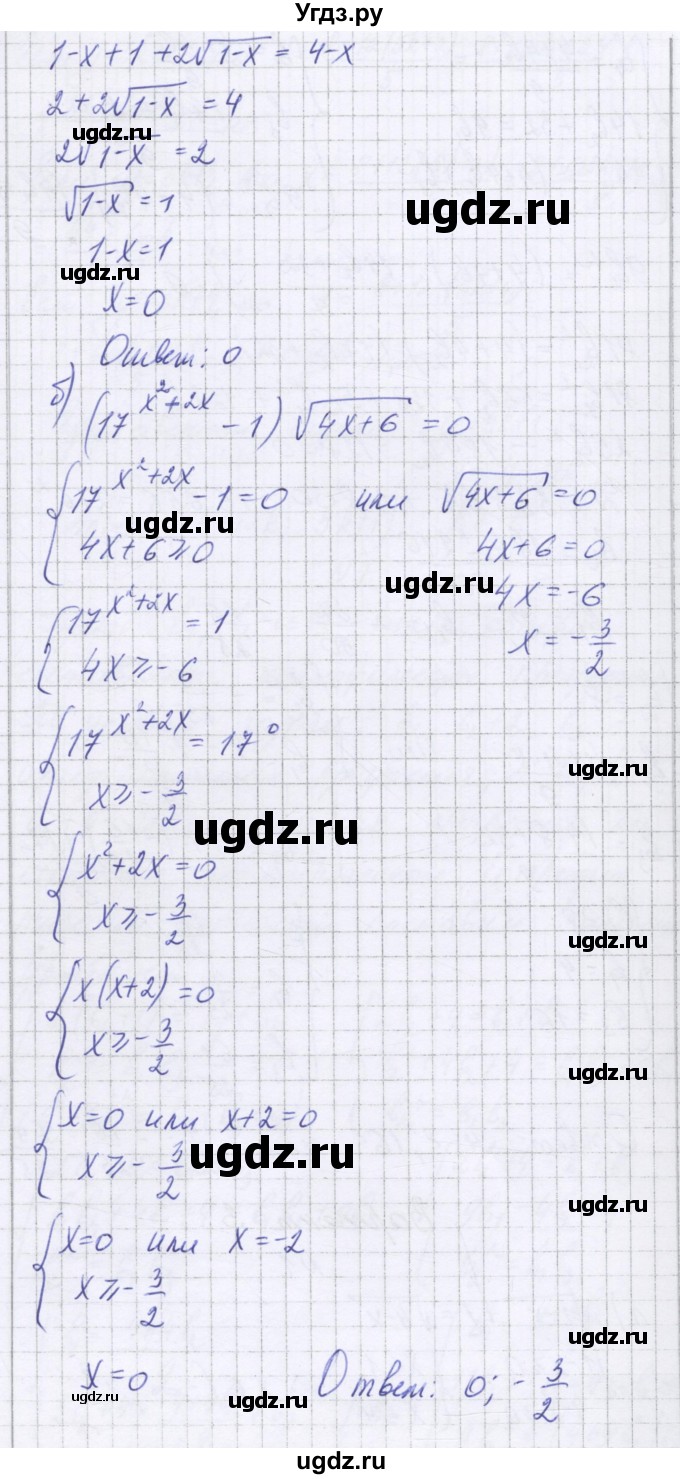 Угдз.ру
1-x+1+2√(1-x) = 4-x
2+2√(1-x) = 4
ugdz.ru
2√(1-x) = 2
√(1-x) = 1
ugdz.ru
1-x=1
ugdz.ru
x=0
Ответ: 0
б) (17^(x²+2x) - 1) √(4x+6) = 0
{ 17^(x²+2x) - 1 = 0 или √(4x+6) = 0
ugdz.ru
4x+6 ⩾ 0 4x+6=0
ugdz.ru
4x=-6
{ 17^(x²+2x) = 1
4x ⩾ -6 x = -3/2
{ 17^(x²+2x) = 17⁰
ugdz.ru
x ⩾ -3/2
ugdz.ru
{ x²+2x=0
x ⩾ -3/2
ugdz.ru
{ x(x+2)=0
x ⩾ -3/2
ugdz.ru
{ x=0 или x+2=0
x ⩾ -3/2
ugdz.ru
ugdz.ru
{ x=0 или x=-2
x ⩾ -3/2
ugdz.ru
x=0 Ответ: 0; -3/2
ugdz.ru
ugdz.ru
ugdz.ru
ugdz.ru